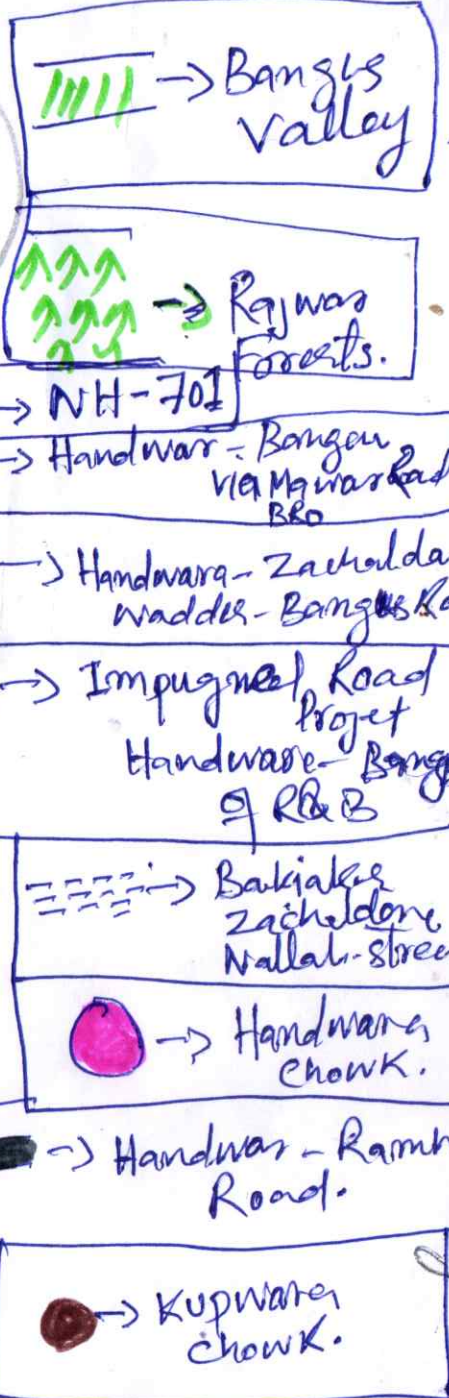 → Bangus
Valley
→ Rajwar
Forests.
→ NH-701
→ Handwar - Bangu
via Mawar Road
BRO
→ Handwara - Zachalda
wadder - Bangus Ro
→ Impugned Road
Projet
Handware - Bang
of R&B
→
Zacheldone
Nallah - stree
→ Handwara
chowk.
→ Handwar - Ramh
Road.
→ Kupwara
chowk.